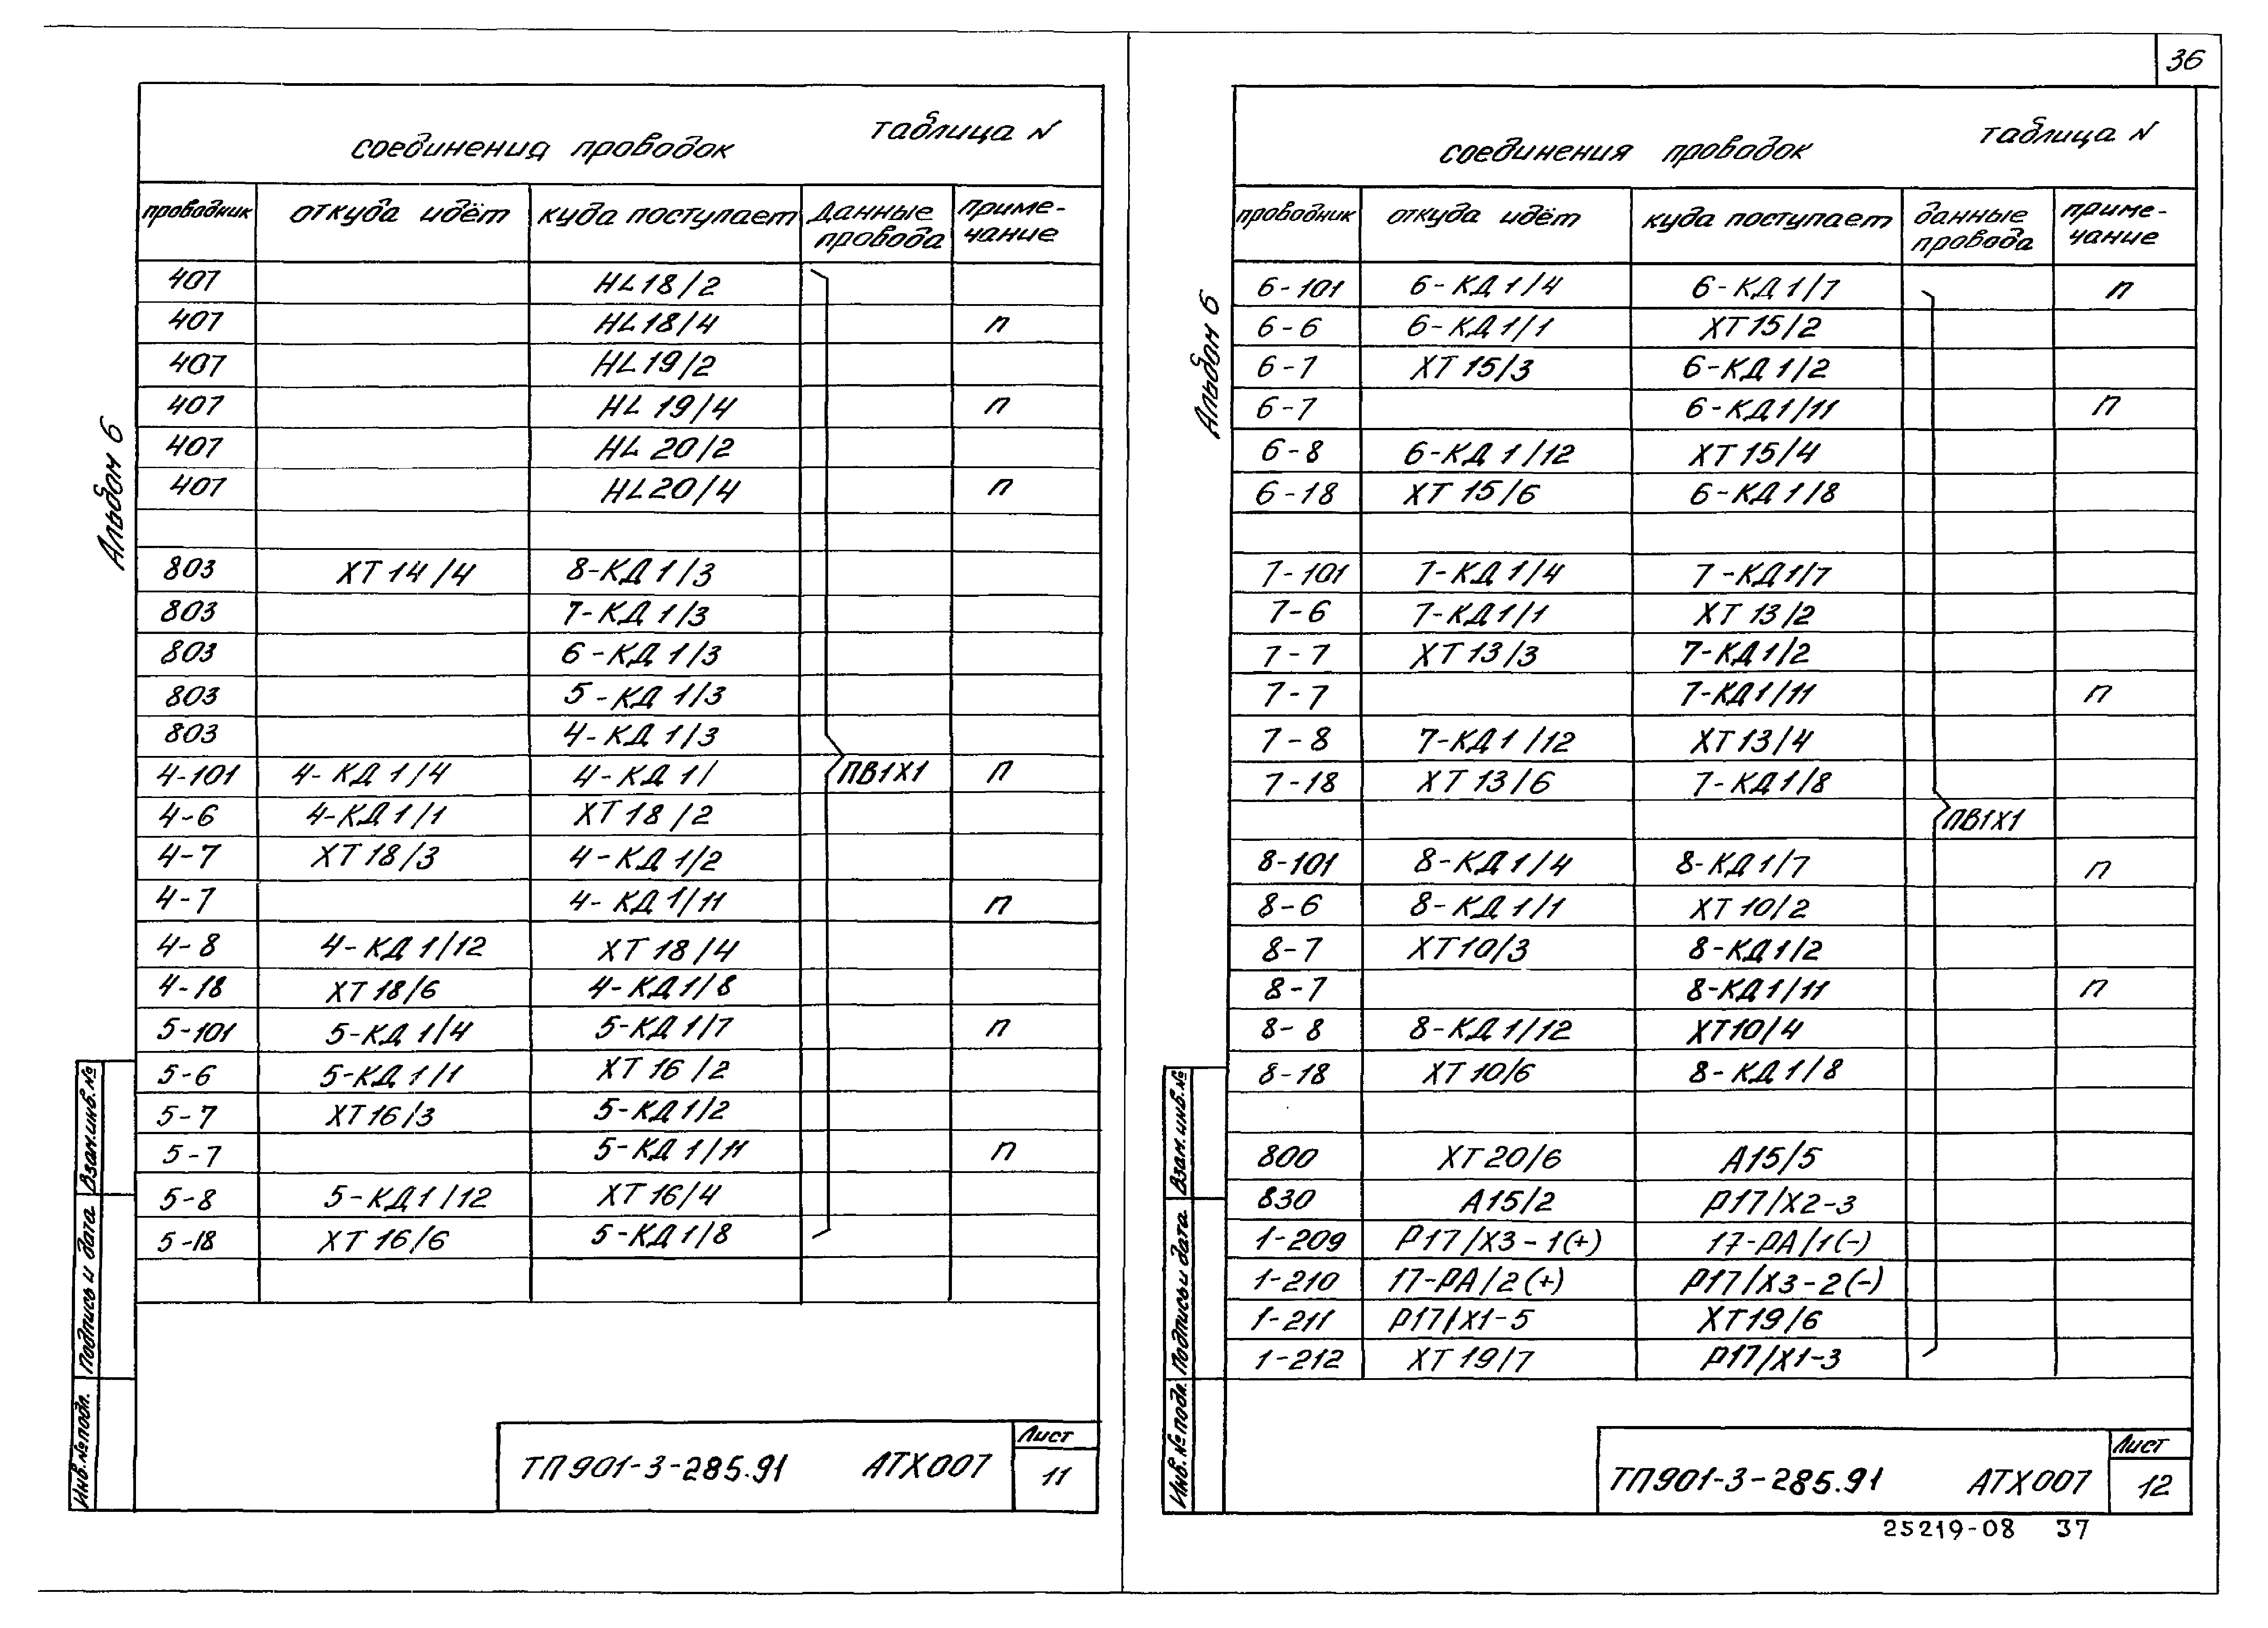 36
Альбом 6
соединения проводок таблица N
проводник откуда идёт куда поступает Данные провода приме-чание
407 HL18/2
407 HL18/4 п
407 HL19/2
407 HL 19/4 п
407 HL 20/2
407 HL20/4 п
803 ХТ14/4 8-КД1/3
803 7-КД1/3
803 6-КД1/3
803 5-КД1/3
803 4-КД1/3
4-101 4-КД1/4 4-КД1/ ПВ1Х1 п
4-6 4-КД1/1 ХТ18/2
4-7 ХТ18/3 4-КД1/2
4-7 4-КД1/11 п
4-8 4-КД1/12 ХТ18/4
4-18 ХТ18/6 4-КД1/8
5-101 5-КД1/4 5-КД1/7 п
5-6 5-КД1/1 ХТ16/2
5-7 ХТ16/3 5-КД1/2
5-7 5-КД1/11 п
5-8 5-КД1/12 ХТ16/4
5-18 ХТ16/6 5-КД1/8
Взам.инв.№
Подпись и дата
Инв.№подл.
ТП901-3-285.91 АТХ007
Лист
11
Альбом 6
соединения проводок таблица N
проводник откуда идёт куда поступает данные провода приме-чание
6-101 6-КД1/4 6-КД1/7 п
6-6 6-КД1/1 ХТ15/2
6-7 ХТ15/3 6-КД1/2
6-7 6-КД1/11 п
6-8 6-КД1/12 ХТ15/4
6-18 ХТ15/6 6-КД1/8
7-101 7-КД1/4 7-КД1/7
7-6 7-КД1/1 ХТ13/2
7-7 ХТ13/3 7-КД1/2
7-7 7-КД1/11 п
7-8 7-КД1/12 ХТ13/4
7-18 ХТ13/6 7-КД1/8
ПВ1Х1
8-101 8-КД1/4 8-КД1/7 п
8-6 8-КД1/1 ХТ10/2
8-7 ХТ10/3 8-КД1/2
8-7 8-КД1/11 п
8-8 8-КД1/12 ХТ10/4
8-18 ХТ10/6 8-КД1/8
800 ХТ20/6 А15/5
830 А15/2 Р17/Х2-3
1-209 Р17/Х3-1(+) 17-РА/1(-)
1-210 17-РА/2(+) Р17/Х3-2(-)
1-211 Р17/Х1-5 ХТ19/6
1-212 ХТ19/7 Р17/Х1-3
Взам.инв.№
Подпись и дата
Инв.№подл.
ТП901-3-285.91 АТХ007
Лист
12
25219-08 37